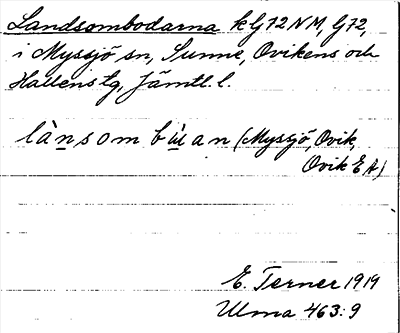 Landsombodarna kG72NM, G72,
i Myssjö sn, Sunne, Ovikens och
Hallens tg, Jämtl. l.
lànsom bùan (Myssjö, Ovik,
Ovik EA)
E. Terner 1919
Ulma 463:9